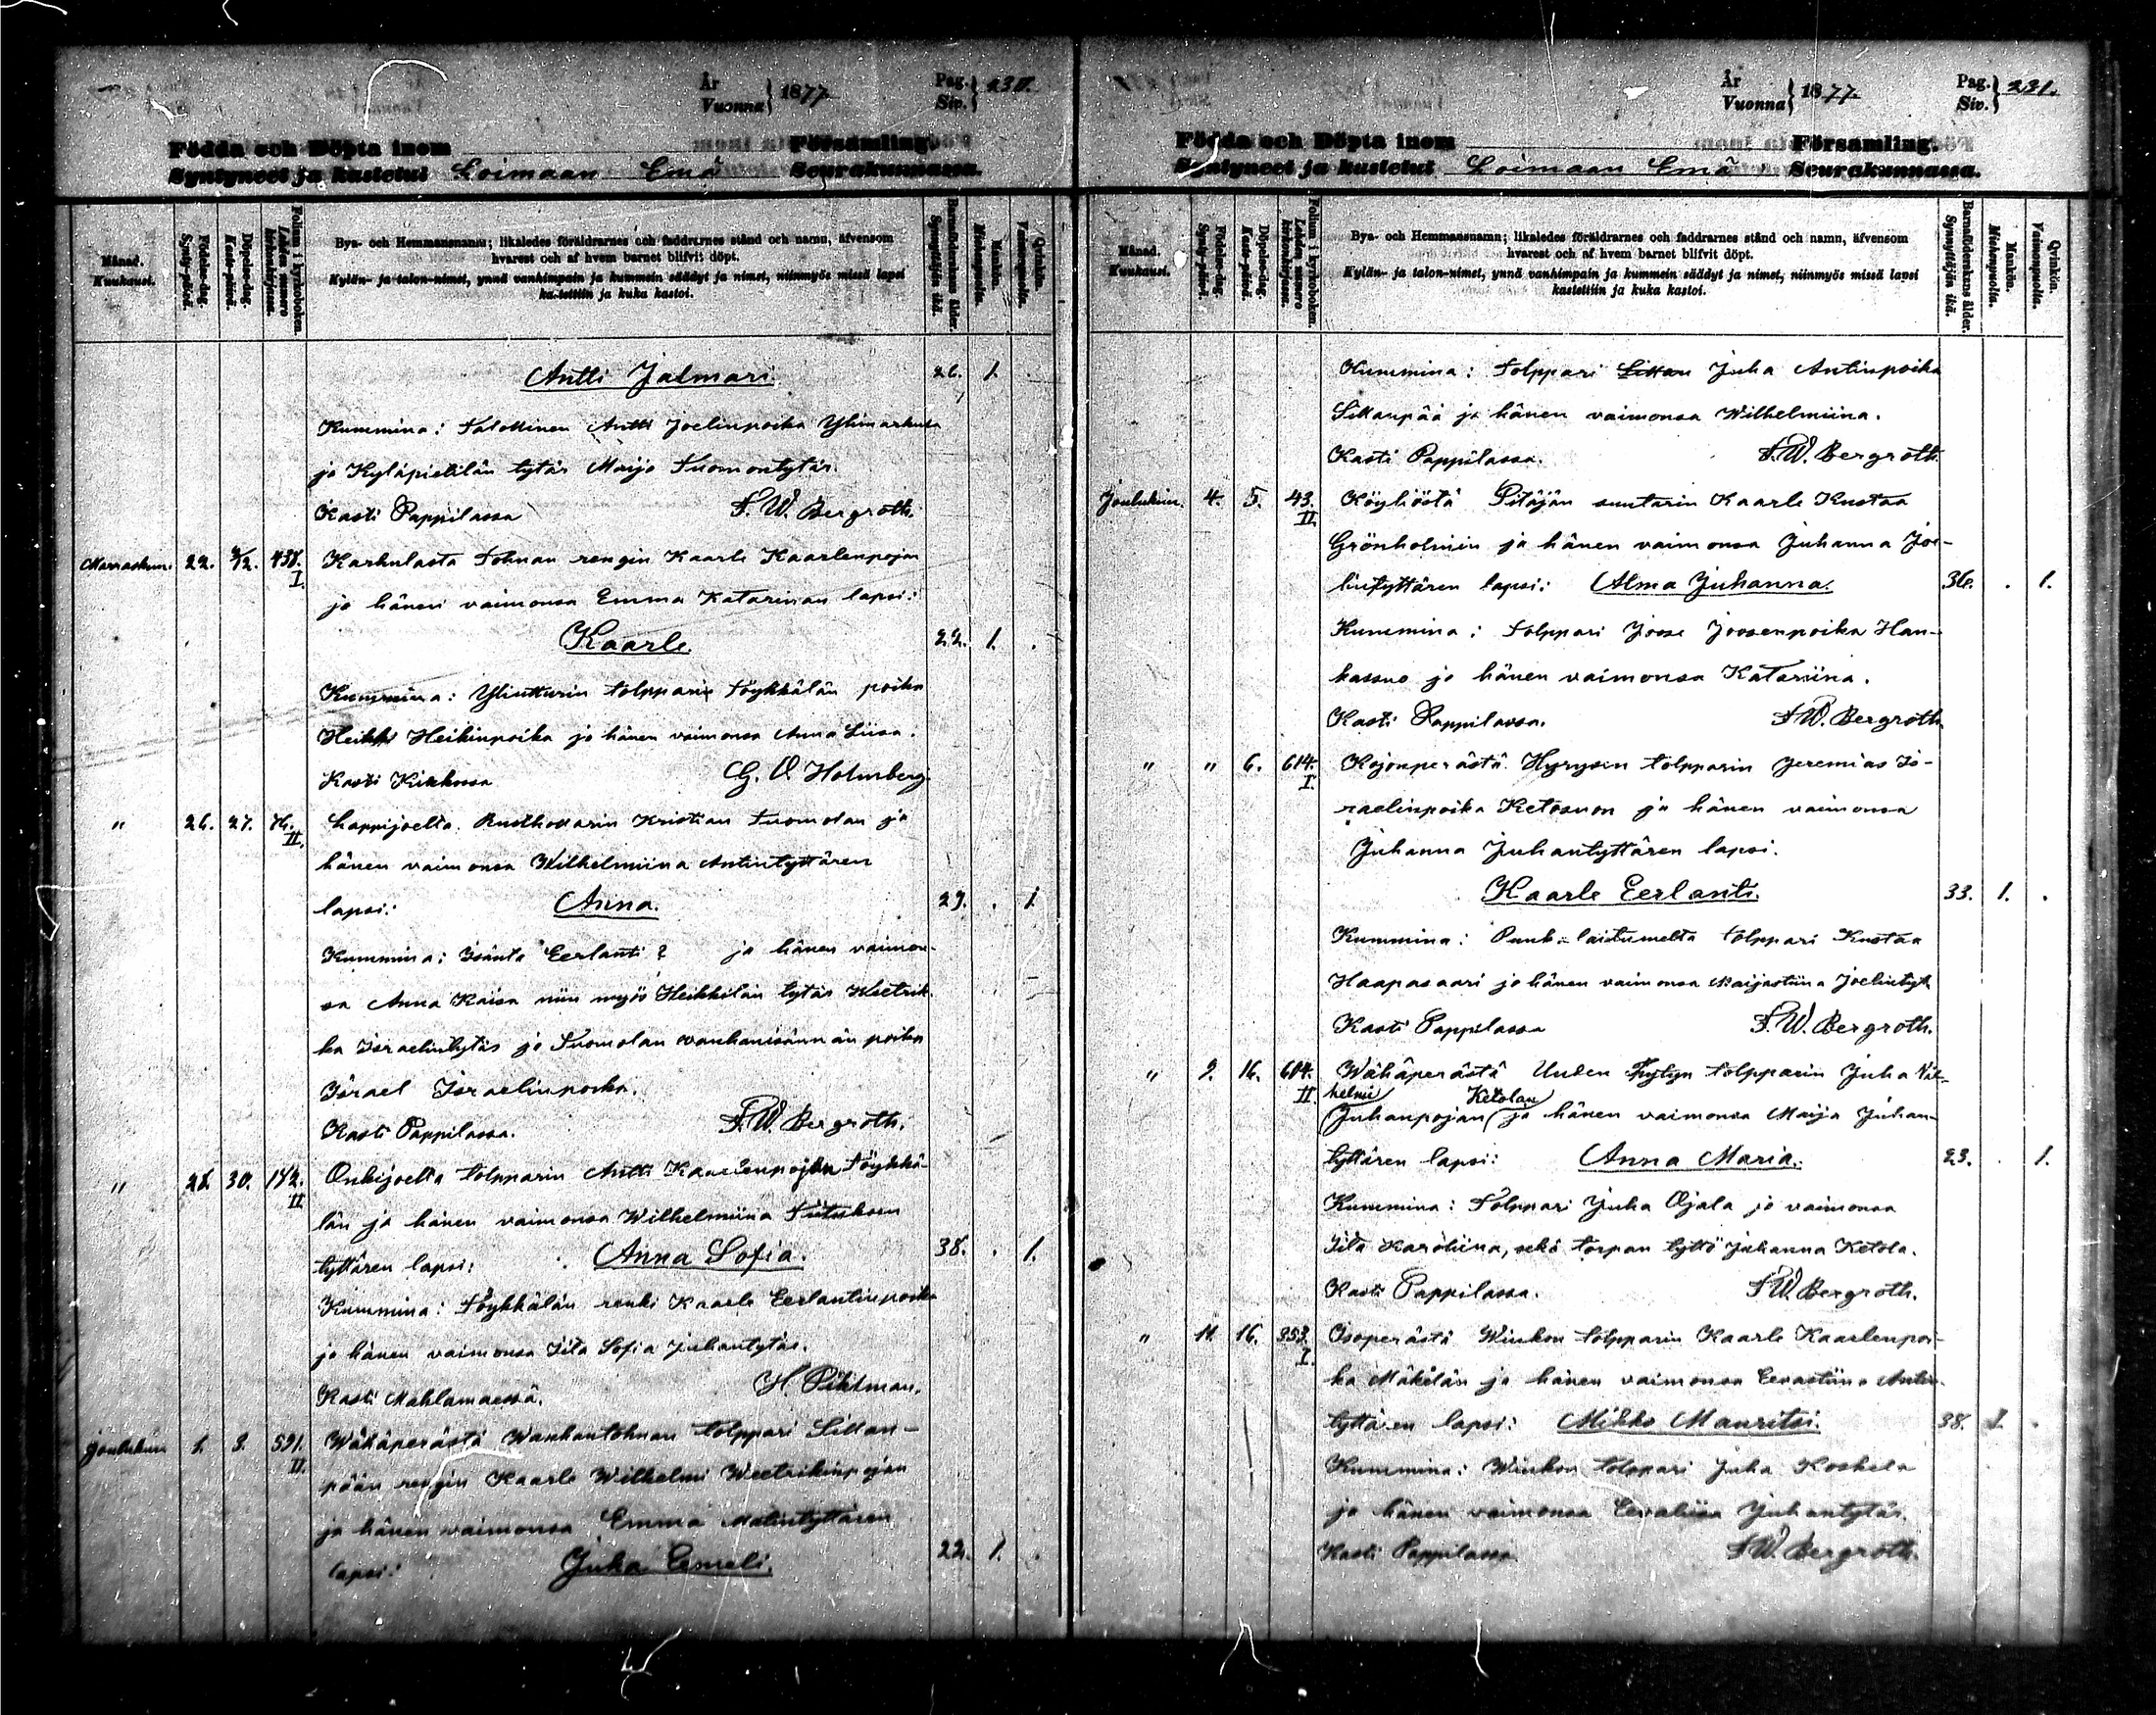 År
Vuonna } 1877
Pag.
Siv. } 230.
Födda och Döpta inom Församling.
Syntyneet ja kastetut Loimaan Emä Seurakunnassa.
Månad.
Kuukausi.
Födelse-dag.
Synty-päivä.
Döpelse-dag.
Kaste-päivä.
Folium i kyrkoboken.
Lehden numero kirkonkirjassa.
Bya- och Hemmansnamn; likaledes föräldrarnes och faddrarnes stånd och namn, äfvensom
hvarest och af hvem barnet blifvit döpt.
Kylän- ja talon-nimet, ynnä vanhimpain ja kummein säädyt ja nimet, niinmyös missä lapsi
kastettiin ja kuka kastoi.
Barnaföderskans ålder.
Synnyttäjän ikä.
Mankön.
Miehenpuolta.
Qvinkön.
Vaimonpuolta.
Antti Jalmari. 26. 1.
Kummina: Talollinen Antti Joelinpoika Ylimarkula
ja Kyläpietilän tytär Maija Tuomontytär.
Kasti Pappilassa F. W. Bergroth.
Marraskuu. 22. 2/12. 438. I. Karhulasta Tohnan rengin Kaarle Kaarlenpojan
ja hänen vaimonsa Emma Katarinan lapsi:
Kaarle. 22. 1. .
Kummina: Ylintturin tolpparin Töykkälän poika
Heikki Heikinpoika ja hänen vaimonsa Anna Liisa.
Kasti Kirkossa G. O Holmberg.
" 26. 27. 76. II. Lappijoelta. Rusthollarin Kristian Tuomolan ja
hänen vaimonsa Wilhelmiina Antintyttären
lapsi: Anna. 29. . 1.
Kummina: Isäntä Eerlanti ? ja hänen vaimon-
sa Anna Kaisa niin myös Heikkilän tytär Weetrik-
ka Israelintytär ja Tuomolan vanhanisännän poika
Israel Israelinpoika.
Kasti Pappilassa. F. W. Bergroth.
" 28. 30. 142. II Onkijoelta tolpparin Antti Kaarlenpojan Töykkä-
län ja hänen vaimonsa Wilhelmiina
tyttären lapsi: Anna Sofia. 38. . 1.
Kummina: Töykkälän renki Kaarle Eerlantinpoika
ja hänen vaimonsa Iita Sofia Juhantytär.
Kasti Mahlamaessä. H. Pihlman.
Joulukuu 1. 3. 591. II. Wähäperästä Wanhantohnan tolppari Sillan-
pään rengin Kaarle Wilhelmi Weetrikinpojan
ja hänen vaimonsa Emma Matintyttären
lapsi: Juha Eemeli. 22. 1. .
År
Vuonna } 1877.
Pag.
Siv. } 231.
Födda och Döpta inom Församling.
Syntyneet ja kastetut Loimaan Emä Seurakunnassa.
Månad.
Kuukausi.
Födelse-dag.
Synty-päivä.
Döpelse-dag.
Kaste-päivä.
Folium i kyrkoboken.
Lehden numero kirkonkirjassa.
Bya- och Hemmansnamn; likaledes föräldrarnes och faddrarnes stånd och namn, äfvensom
hvarest och af hvem barnet blifvit döpt.
Kylän- ja talon-nimet, ynnä vanhimpain ja kummein säädyt ja nimet, niinmyös missä lapsi
kastettiin ja kuka kastoi.
Barnaföderskans ålder.
Synnyttäjän ikä.
Mankön.
Miehenpuolta.
Qvinkön.
Vaimonpuolta.
Kummina: tolppari Sillan Juha Antinpoika
Sillanpää ja hänen vaimonsa Wilhelmiina.
Kasti Pappilassa. F. W. Bergroth.
Joulukuu. 4. 5. 43. II. Köyliöstä Pitäjän suutarin Kaarle Kustaa
Grönholmin ja hänen vaimonsa Juhanna Joe-
lintyttären lapsi: Alma Juhanna. 36. . 1.
Kummina: tolppari Joose Joosenpoika Han-
kassuo ja hänen vaimonsa Katariina.
Kasti Pappilassa. F. W. Bergroth
" " 6. 614. I. Kojonperästä. Hyrysin tolpparin Jeremias Is-
raelinpoika Ketosuon ja hänen vaimonsa
Juhanna Juhantyttären lapsi.
Kaarle Eerlanti. 33. 1. .
Kummina: Punkalaitumelta tolppari Kustaa
Haapasaari ja hänen vaimonsa Maijastiina Joelintyt.
Kasti Pappilassa F. W. Bergroth.
" 9. 16. 604. II. Wähäperästä Uuden tolpparin Juha Vil-
helmi Ketolan
Juhanpojan ja hänen vaimonsa Maija Juhan-
tyttären lapsi: Anna Maria. 23. . 1.
Kummina: Tolppari Juha Ojala ja vaimonsa
Iita Karoliina, sekä torpan tyttö Juhanna Ketola.
Kasti Pappilassa. F. W. Bergroth.
" 11. 16. 353. I. Osoperästä Wiukon tolpparin Kaarle Kaarlenpoi-
ka Mäkelän ja hänen vaimonsa Eevastiina Antin-
tyttären lapsi: Mikko Mauritsi. 38. 1. .
Kummina: Wiukon tolppari Juha Koskela
ja hänen vaimonsa Eevaliisa Juhantytär.
Kasti Pappilassa F. W. Bergroth.